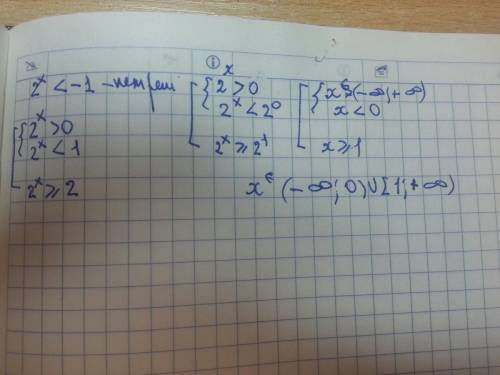 2^x < -1 - нет реш
{ 2^x > 0
2^x < 1
2^x ⩾ 2
①
{ 2^x > 0
2^x < 2^0
2^x ⩾ 2^1
{ x ∈ (-∞; +∞)
x < 0
x ⩾ 1
x ∈ (-∞; 0) ∪ [1; +∞)